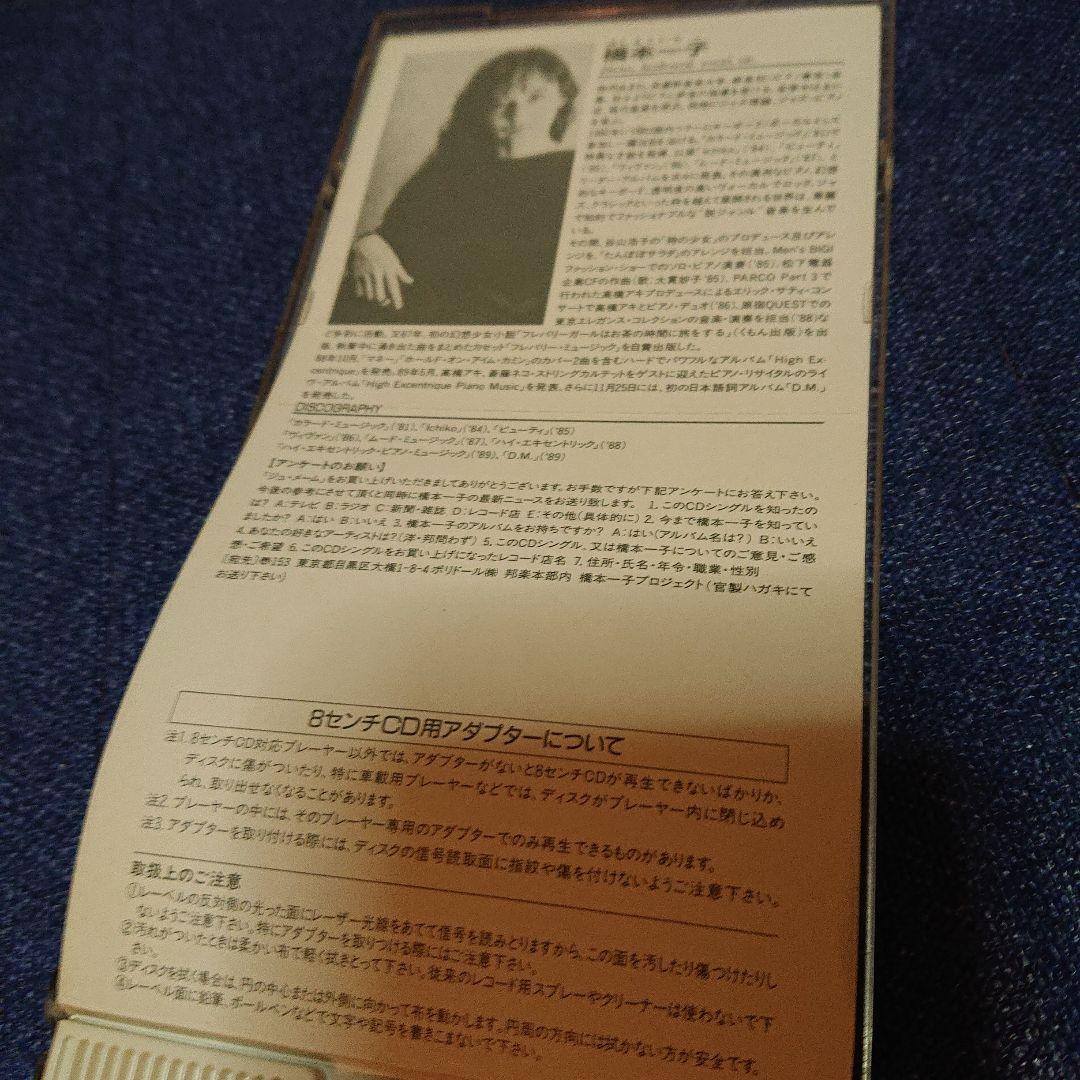 橋本一子
リーダー・アルバムを次々に発表。その流麗なピアノ、幻想
的なキーボード、透明度の高いヴォーカルでロック、ジャ
ズ、クラシックといった枠を越えて展開される世界は、華麗
で知的でファッショナブルな“脱ジャンル”音楽を生んで
いる。
その間、谷山浩子の「時の少女」のプロデュース及びアレ
ンジを、「たんぽぽサラダ」のアレンジを担当、Men's BIGI
ファッション・ショーでのソロ・ピアノ演奏('85)、松下電器
企業CFの作曲(歌:大貫妙子'85)、PARCO Part 3で
行われた高橋アキプロデュースによるエリック・サティ・コン
サートで高橋アキとピアノ・デュオ('86)、原宿QUESTでの
東京エレガンス・コレクションの音楽・演奏を担当('88)な
ど多彩に活動。又87年、初の幻想少女小説「フレバリーガールはお茶の時間に旅をする」(くもん出版)を出
版、執筆中に湧き出た曲をまとめたカセット「フレバリー・ミュージック」を自費出版した。
88年10月、「マネー」「ホールド・オン・アイム・カミン」のカバー2曲を含むハードでパワフルなアルバム「High Ex-
centrique」を発売。89年5月、高橋アキ、斎藤ネコ・ストリングカルテットをゲストに迎えたピアノ・リサイタルのライ
ヴ・アルバム「High Excentrique Piano Music」を発表、さらに11月25日には、初の日本語詞アルバム「D.M.」
を発売した。
DISCOGRAPHY
「カラード・ミュージック」('81)、「Ichiko」('84)、「ビューティ」('85)
「ヴィヴァン」('86)、「ムード・ミュージック」('87)、「ハイ・エキセントリック」('88)
「ハイ・エキセントリック・ピアノ・ミュージック」('89)、「D.M.」('89)
【アンケートのお願い】
「ジュ・メーム」をお買い上げいただきましてありがとうございます。お手数ですが下記アンケートにお答え下さい。
今後の参考にさせて頂くと同時に橋本一子の最新ニュースをお送り致します。 1.このCDシングルを知ったの
は? A:テレビ B:ラジオ C:新聞・雑誌 D:レコード店 E:その他(具体的に) 2.今まで橋本一子を知ってい
ましたか? A:はい B:いいえ 3.橋本一子のアルバムをお持ちですか? A:はい(アルバム名は?) B:いいえ
4.あなたの好きなアーティストは?(洋・邦問わず) 5.このCDシングル、又は橋本一子についてのご意見・ご感
想・ご希望 6.このCDシングルをお買い上げになったレコード店名 7.住所・氏名・年令・職業・性別
〔宛先〕〒153 東京都目黒区大橋1-8-4ポリドール㈱ 邦楽本部内 橋本一子プロジェクト(官製ハガキにて
お送り下さい)
8センチCD用アダプターについて
注1.8センチCD対応プレーヤー以外では、アダプターがないと8センチCDが再生できないばかりか、
ディスクに傷がついたり、特に車載用プレーヤーなどでは、ディスクがプレーヤー内に閉じ込め
られ、取り出せなくなることがあります。
注2.プレーヤーの中には、そのプレーヤー専用のアダプターでのみ再生できるものがあります。
注3.アダプターを取り付ける際には、ディスクの信号読取面に指紋や傷を付けないようご注意下さい。
取扱上のご注意
①レーベルの反対側の光った面にレーザー光線をあてて信号を読みとりますから、この面を汚したり傷つけたりし
ないようご注意下さい。特にアダプターを取りつける際にはご注意下さい。
②汚れがついたときは柔かい布で軽く拭きとって下さい。従来のレコード用スプレーやクリーナーは使わないで下
さい。
③ディスクを拭く場合は、円の中心または外側に向かって布を動かします。円周の方向には拭かない方が安全です。
④レーベル面に鉛筆、ボールペンなどで文字や記号を書きこまないで下さい。